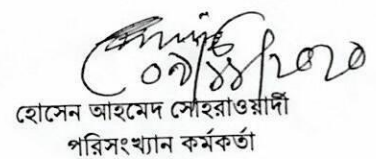 ০৯/১১/২০২০
হোসেন আহমেদ সোহরাওয়ার্দী
পরিসংখ্যান কর্মকর্তা